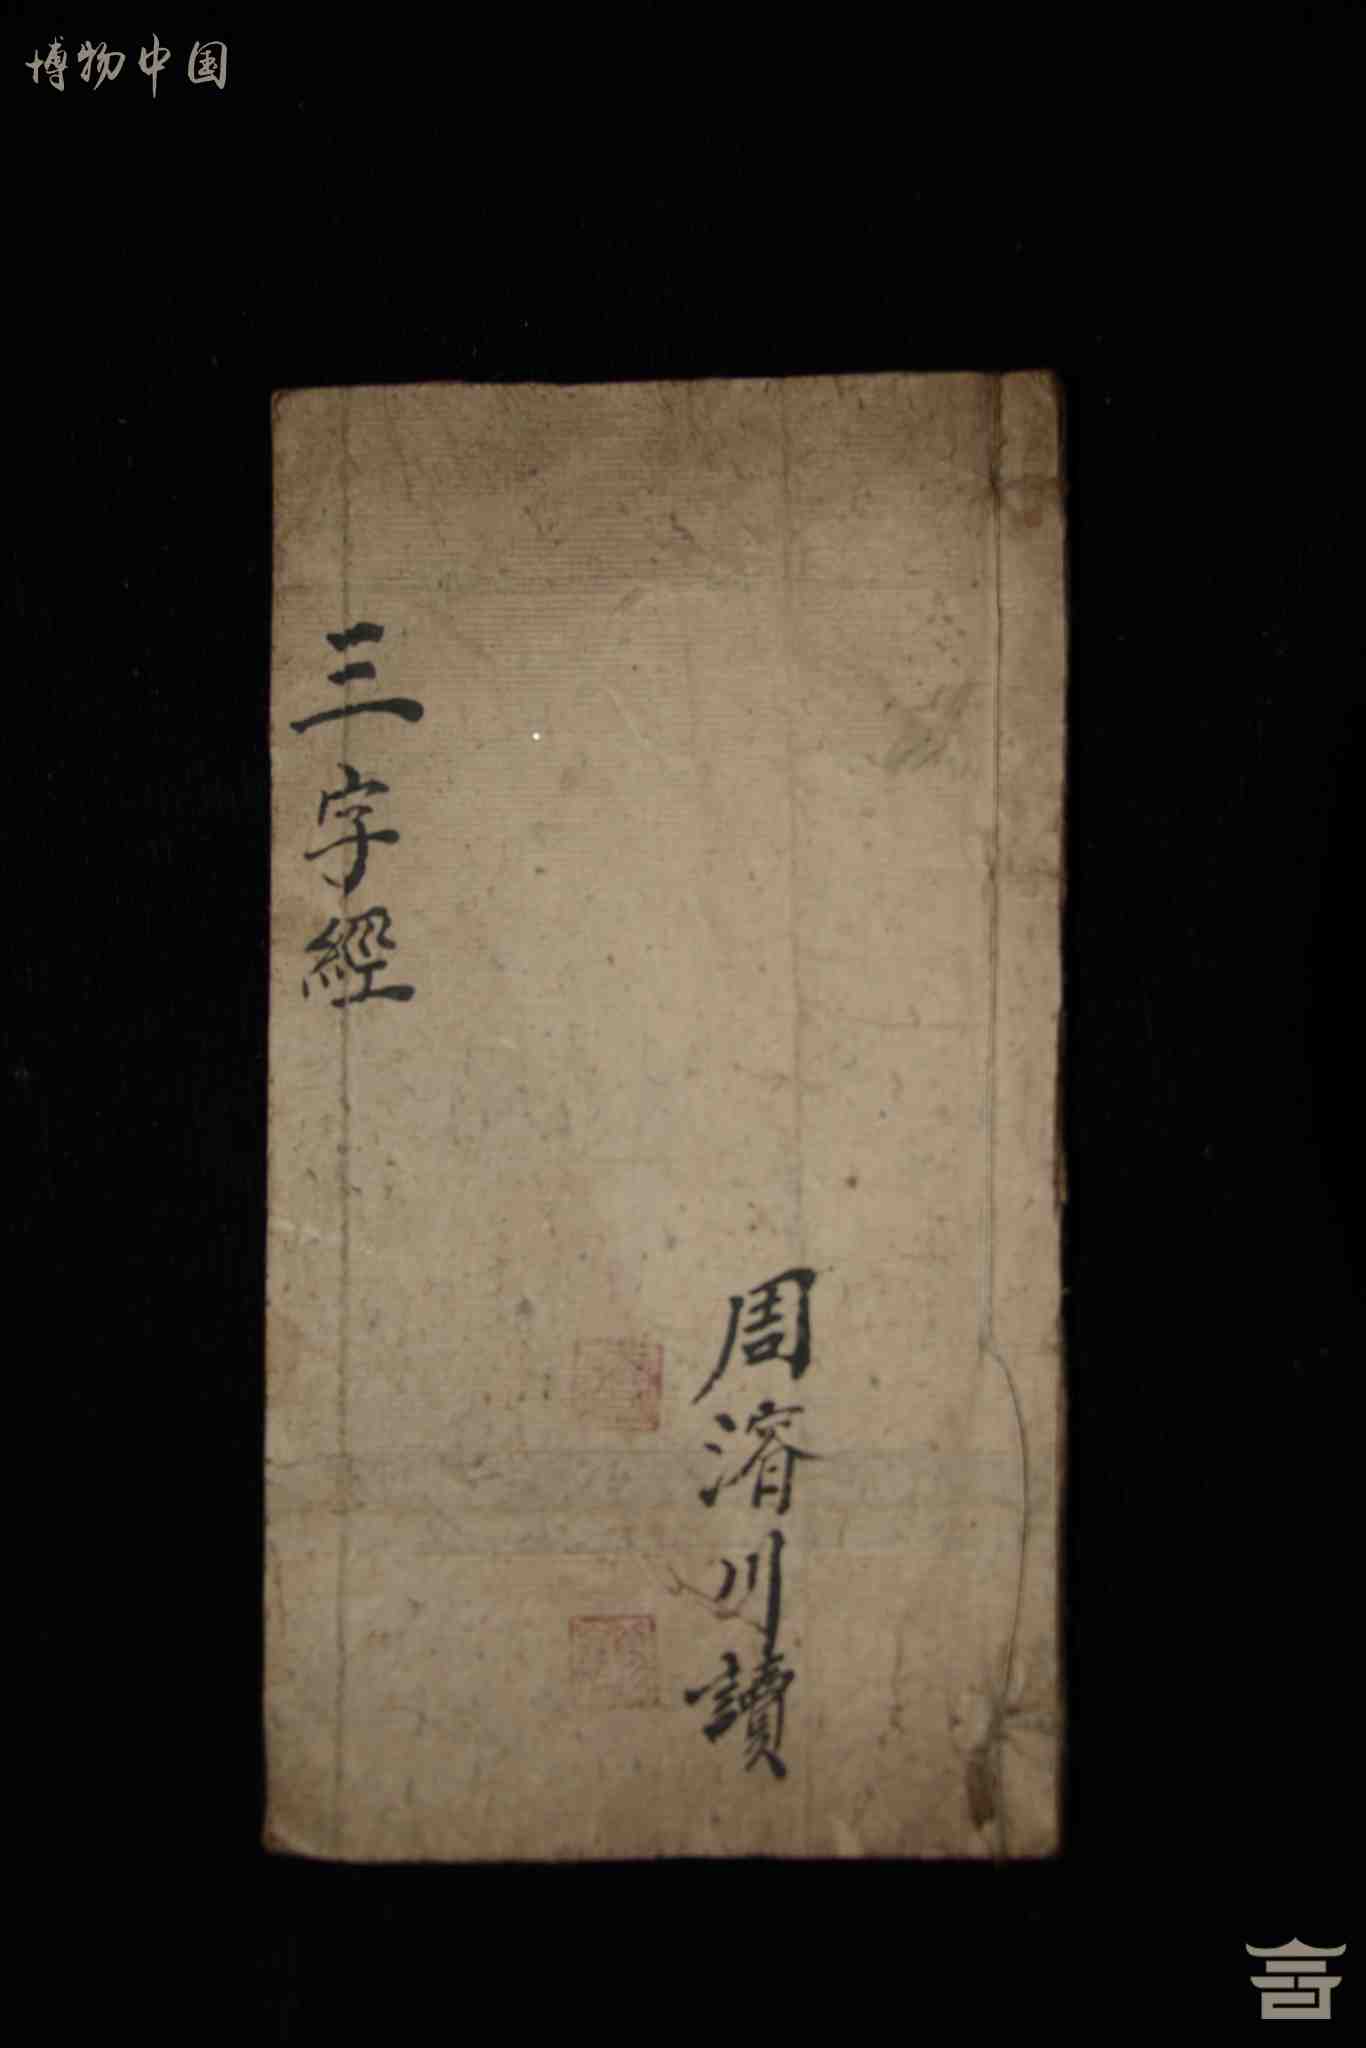 博物中国
三字經
周濬川讀